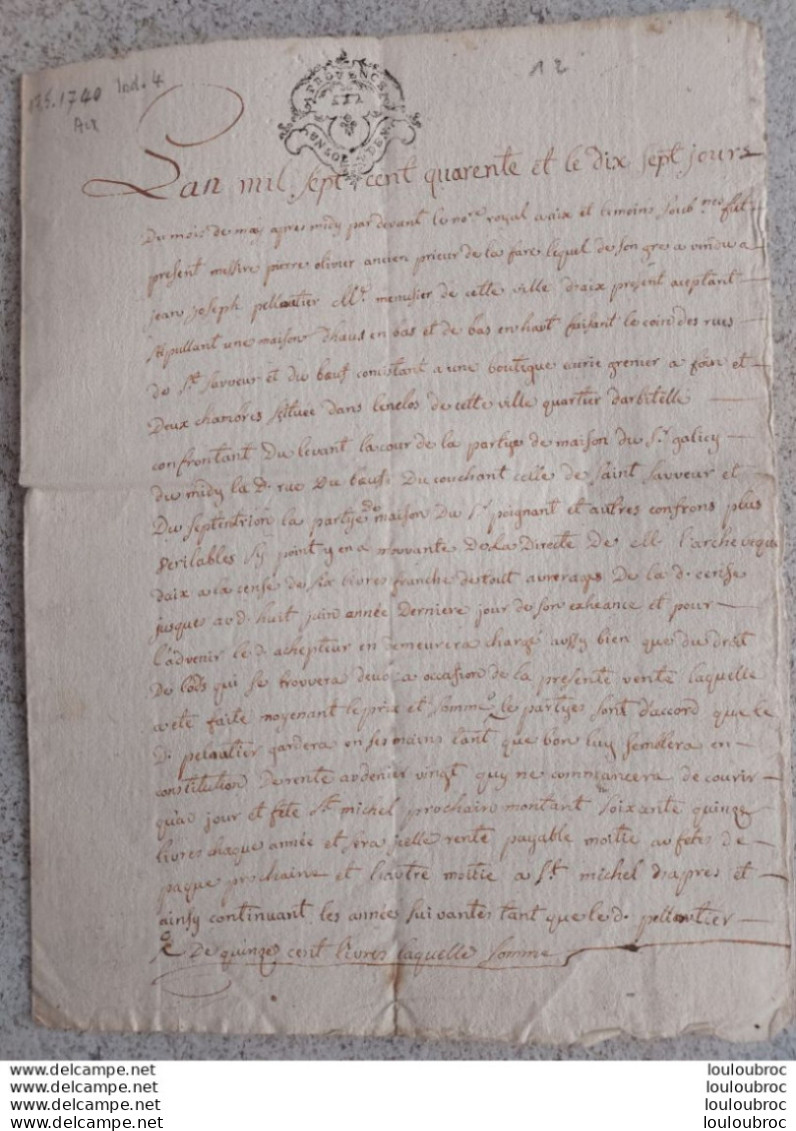 175.1740 Ind. 4
Aix
12
PROVENCE
UN SOL
Lan mil sept cent quarente et le dix sept jour
Du mois de may apres midy pardevant le no.re royal a aix et temoins soub.nes fut
present messire pierre olivier ancien prieur de la fare lequel de son gre a vendu a
jean joseph pellautier M.e menusier de cette ville d'aix present aceptant
stipullant une maison d'haus en bas et de bas en haut faisant le coin des rues
de S.t Sauveur et du bœuf concistant a une boutique ecurie grenier a foin et
Deux chambres située dans lenclos de cette ville quartier darbitelle
confrontant Du levant la cour de la partye de maison du S.r galicy
du midy la d. rue Du bœuf Du couchant celle de Saint Sauveur et
Du septentrion la partye de maison Du S.r poignant et autres confrons plus
veritables sy point y en a mouvante De la Directe De M. l'archeveque
daix a la cense de six livres franche de tout arrerages De la d. cense
jusques au d. huit juin année Derniere jour de son exheance et pour
l'advenir le d. achepteur en demeurera chargé aussy bien que du droit
De lods qui se trouvera deub a occasion de la presente vente laquelle
a eté faite moyenant le prix et somme le partyes sont d'accord que le
D. pelautier gardera en ses mains tant que bon luy semblera en
constitution De rente au denier vingt quy ne commancera de courir
qu'au jour et fete S.t michel prochain montant soixante quinze
livres chaque année et sera jcelle rente payable moitie au fetes de
paque prochaine et l'autre moitie a S.t michel d'apres et
ainsy continuant les année suivantes tant que le d. pellautier
De quinze cent livres laquelle somme
louloubroc
louloubroc
louloubroc
louloubroc
www.delcampe.net
www.delcampe.net
www.delcampe.net
www.delcampe.net